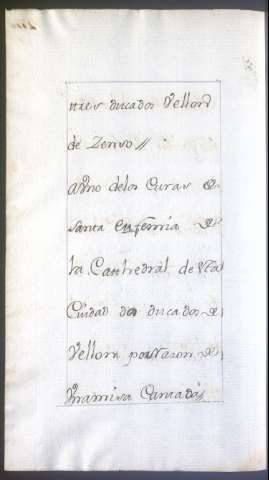 tres ducados Vellon
de Zenso //
a Uno delos Curas de
santa eufemia de
la Cathedral de esta
Ciudad dos ducados de
Vellon por razon de
Una misa Cantada